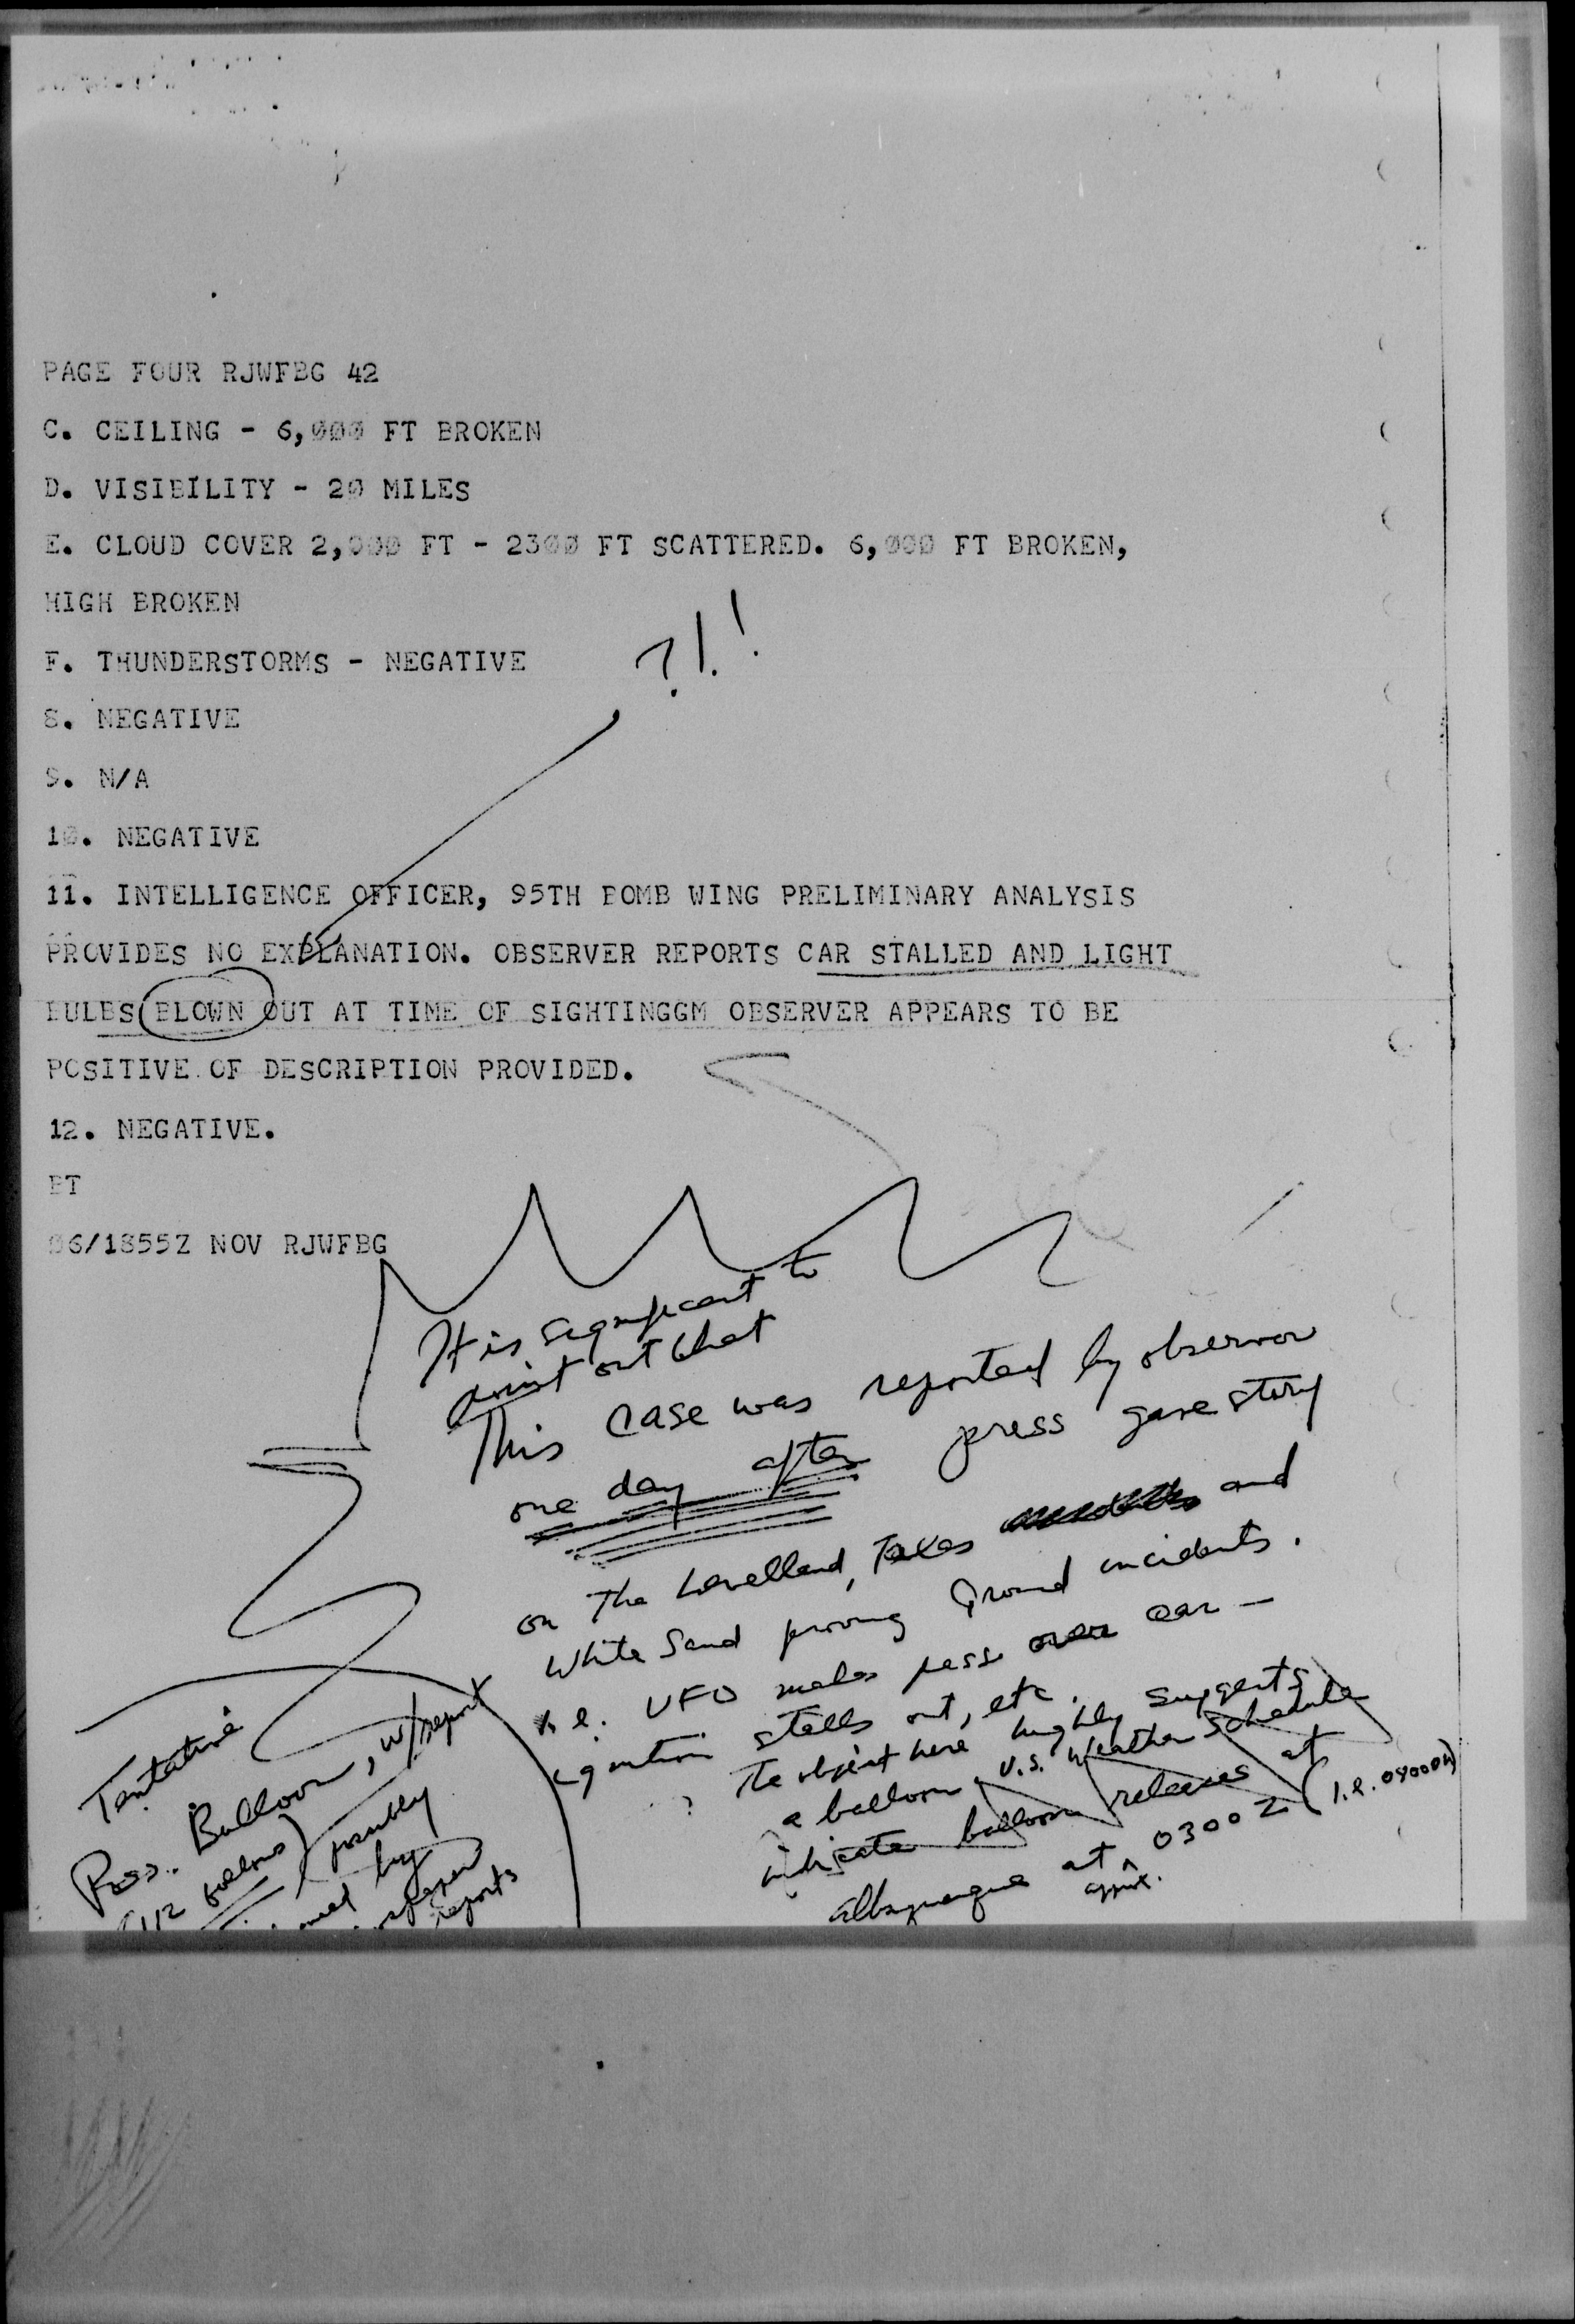 PAGE FOUR RJWFBG 42
C. CEILING - 6,000 FT BROKEN
D. VISIBILITY - 20 MILES
E. CLOUD COVER 2,000 FT - 2300 FT SCATTERED. 6,000 FT BROKEN,
HIGH BROKEN
F. THUNDERSTORMS - NEGATIVE
?!!
8. NEGATIVE
9. N/A
10. NEGATIVE
11. INTELLIGENCE OFFICER, 95TH BOMB WING PRELIMINARY ANALYSIS
PROVIDES NO EXPLANATION. OBSERVER REPORTS CAR STALLED AND LIGHT
BULBS BLOWN OUT AT TIME OF SIGHTINGGM OBSERVER APPEARS TO BE
POSITIVE OF DESCRIPTION PROVIDED.
12. NEGATIVE.
BT
06/1855Z NOV RJWFBG
It is significant to
point out that
This case was reported by observor
one day after press gave story
on The Levelland, Texas and
White Sand proving Ground incidents.
i.e. UFO makes pass over car -
ignition stalls out, etc.
The object here highly suggests
a balloon. U.S. Weather Schedule
indicate balloon releases at
Albuquerque at approx. 0300Z (i.e. 0400
Tentative
Poss. Balloon, w/report
possibly
by
reports